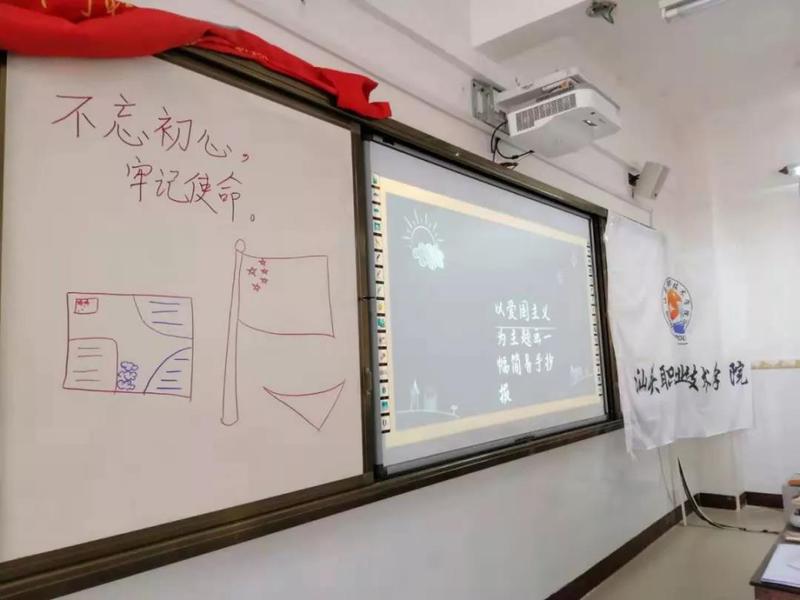 不忘初心，
牢记使命。
以爱国主义
为主题画一
幅简易手抄
报
汕头职业技术学院